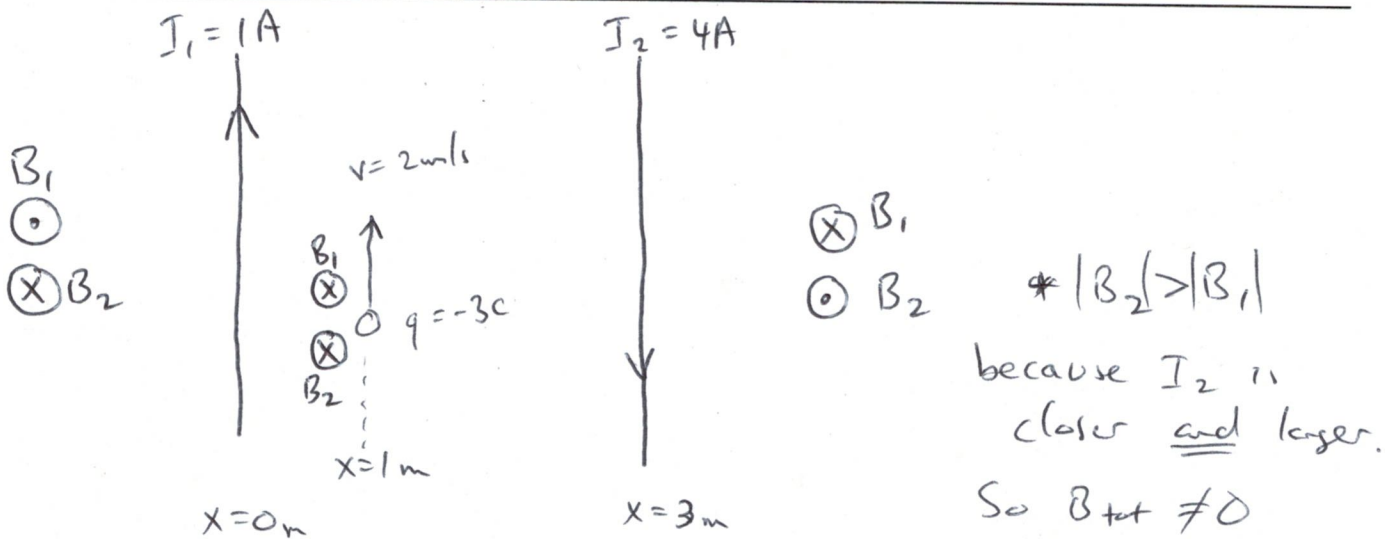 I₁ = 1A
I₂ = 4A
v = 2m/s
B₁
B₂
B₁
B₂
q = -3C
x = 1m
x = 0m
x = 3m
B₁
B₂
* |B₂| > |B₁|
because I₂ is
closer and larger.
So B tot ≠ 0